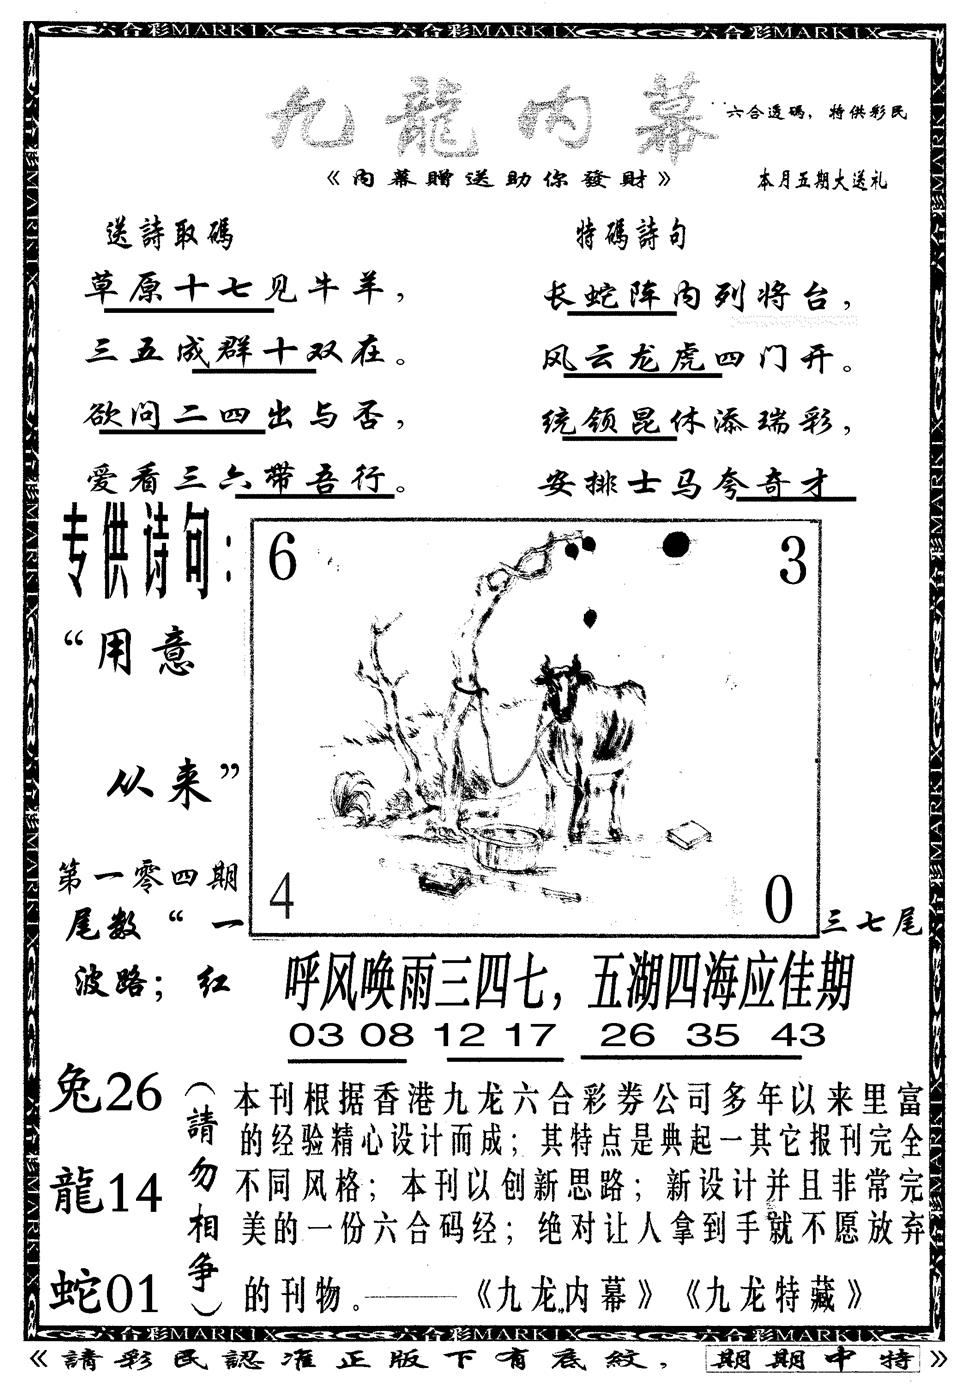 六合彩MARKIX 六合彩MARKIX 六合彩MARKIX
九龍内幕
六合透碼，特供彩民
《内幕贈送助你發財》
本月五期大送礼
送詩取碼
草原十七见牛羊，
三五成群十双在。
欲问二四出与否，
爱看三六带吾行。
特碼詩句
长蛇阵内列将台，
风云龙虎四门开。
统领昆休添瑞彩，
安排士马夸奇才
专供诗句：
“用意
从来”
6
3
4
0
第一零四期
尾数“一
三七尾
波路；红
呼风唤雨三四七，五湖四海应佳期
03 08 12 17 26 35 43
兔26
龍14
蛇01
（請勿相争）
本刊根据香港九龙六合彩券公司多年以来里富
的经验精心设计而成；其特点是典起一其它报刊完全
不同风格；本刊以创新思路；新设计并且非常完
美的一份六合码经；绝对让人拿到手就不愿放弃
的刊物。——《九龙内幕》《九龙特藏》
六合彩MARKIX 六合彩MARKIX 六合彩MARKIX
《請彩民認准正版下有底紋，期期中特》